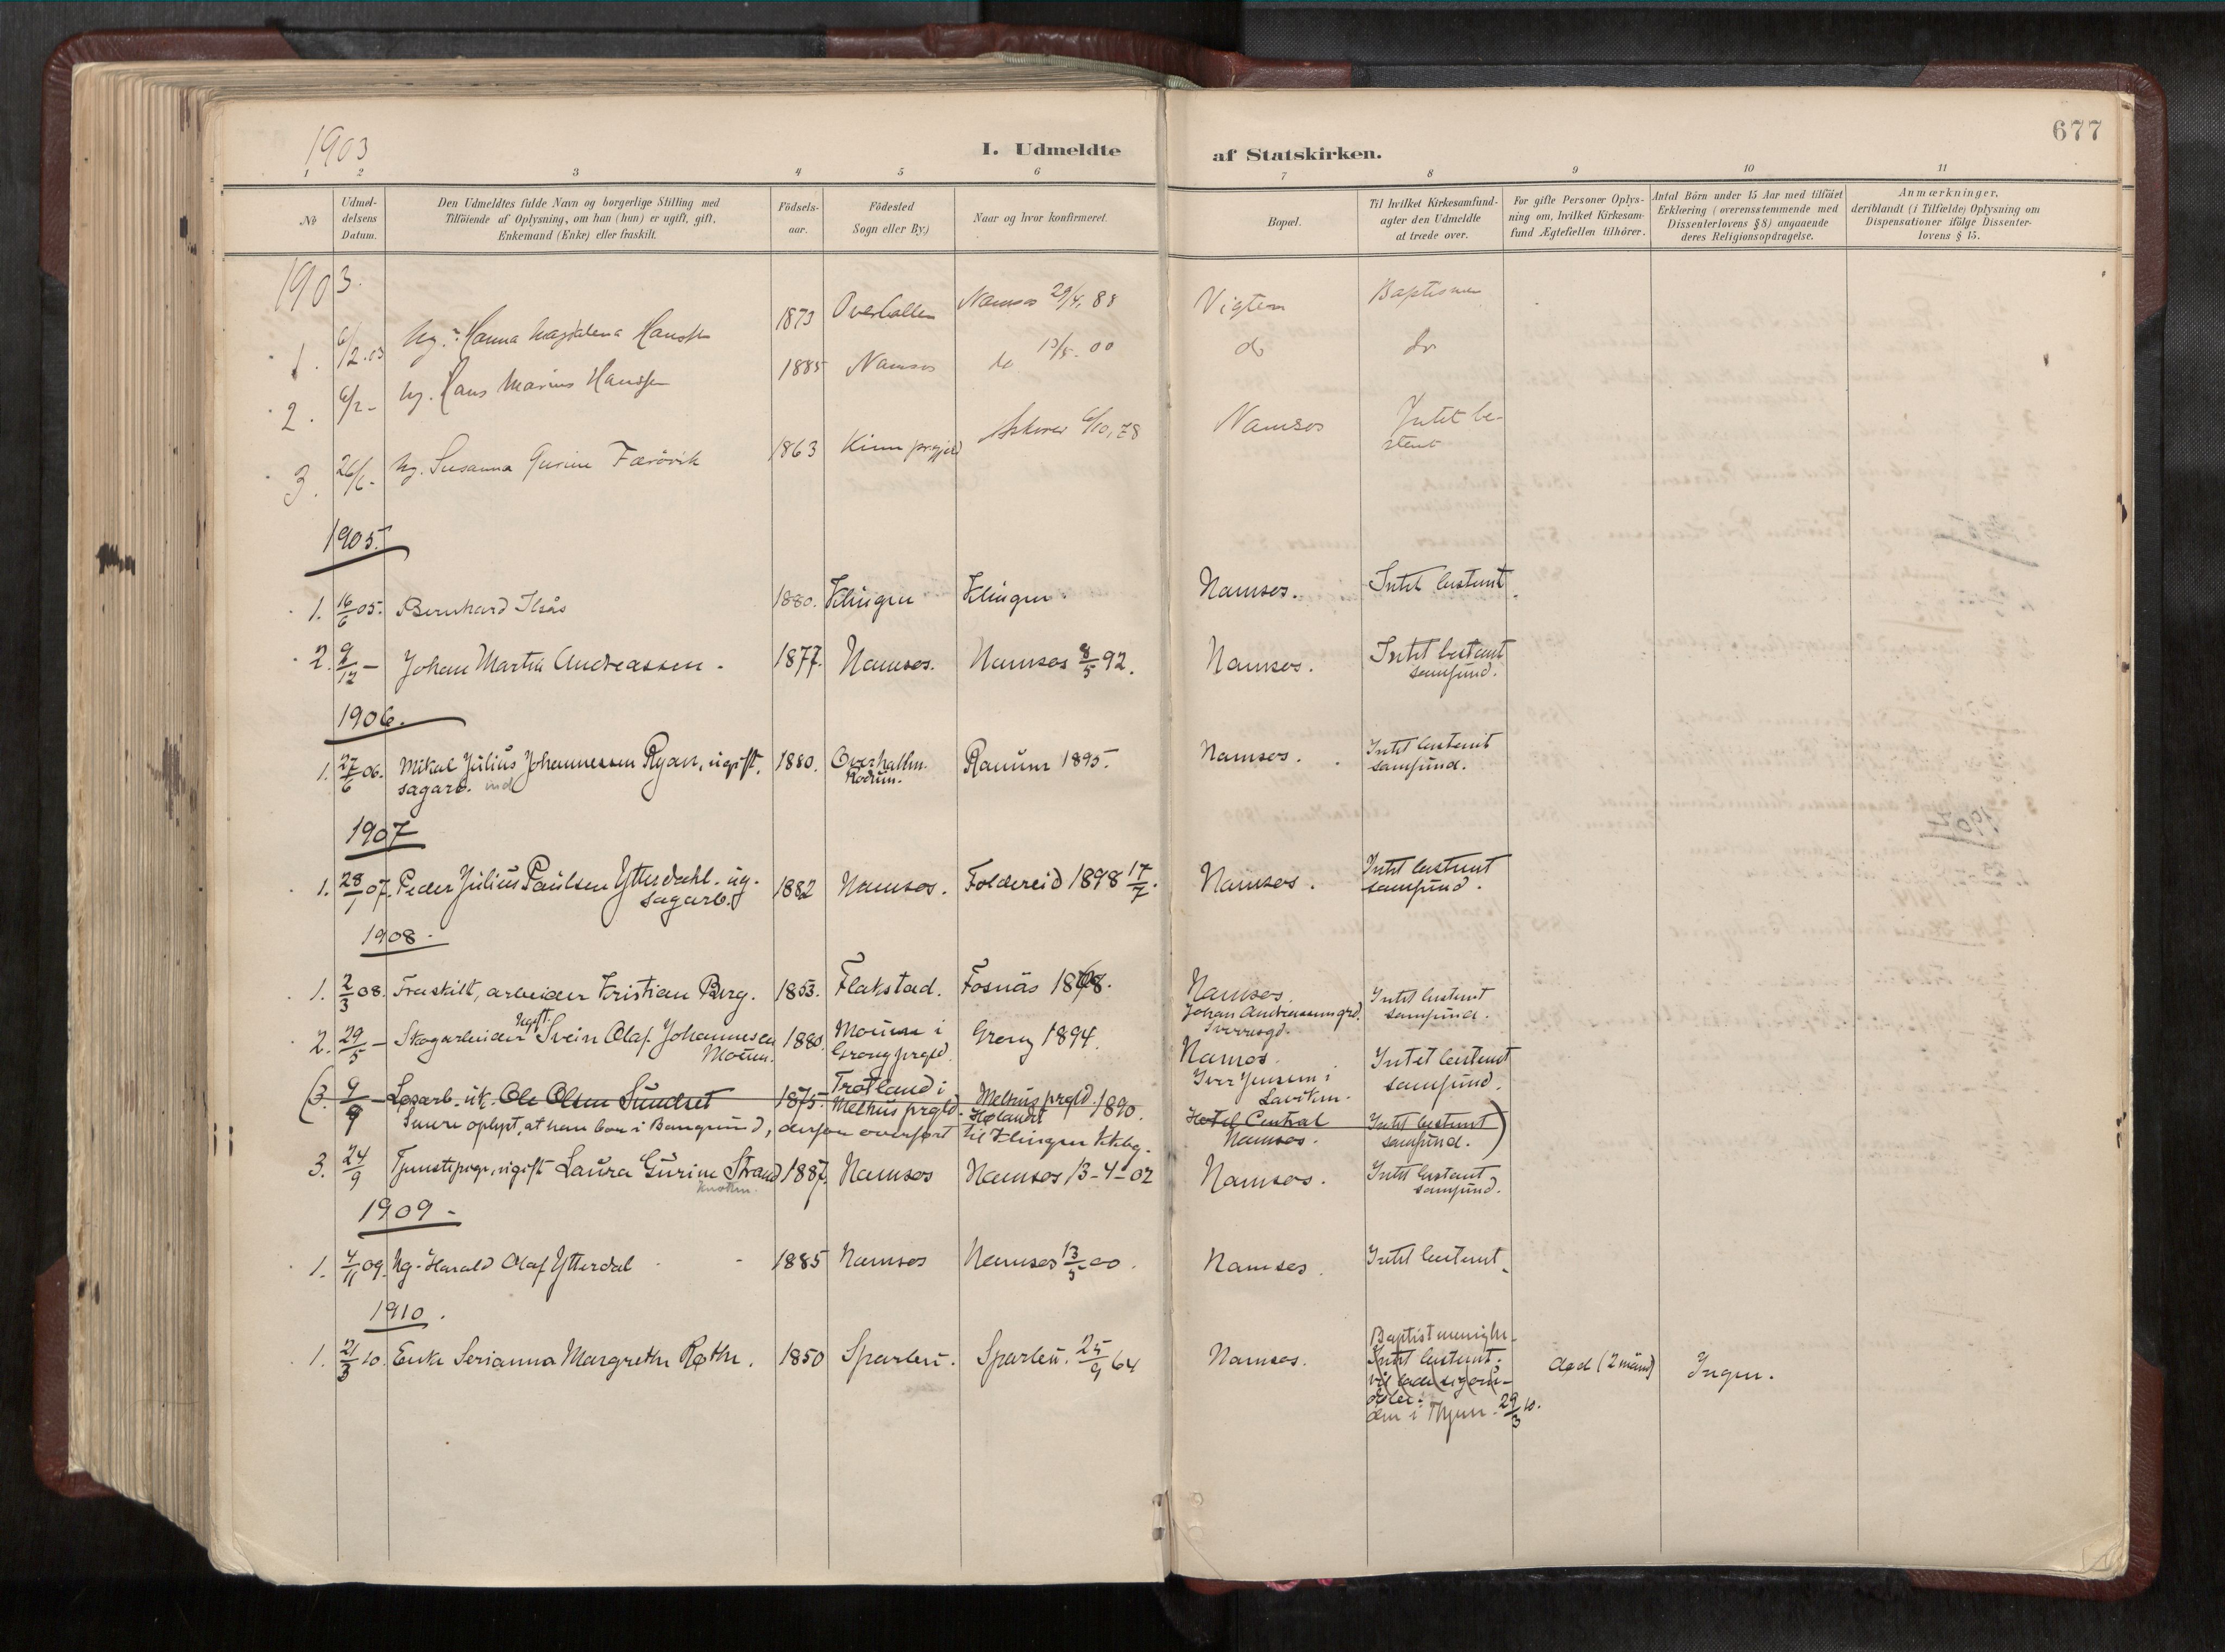 677
1903
I. Udmeldte af Statskirken.
1 2 3 4 5 6 7 8 9 10 11
No
Udmel-
delsens
Datum.
Den Udmeldtes fulde Navn og borgerlige Stilling med
Tilföiende af Oplysning, om han (hun) er ugift, gift,
Enkemand (Enke) eller fraskilt.
Födsels-
aar.
Födested
Sogn eller By.)
Naar og hvor konfirmeret.
Bopæl.
Til hvilket Kirkesamfund-
agter den Udmeldte
at træde over.
For gifte Personer Oplys-
ning om, hvilket Kirkesam-
fund Ægtefællen tilhörer.
Antal Börn under 15 Aar med tilföiet
Erklæring (overensstemmende med
Dissenterlovens § 8) angaaende
deres Religionsopdragelse.
Anmærkninger,
deriblandt (i Tilfælde) Oplysning om
Dispensationer ifölge Dissenter-
lovens § 15.
1903.
1. 6/2.03 Ug. Hanna Magdalena Hansen 1873 Overhallen Namsos 29/4, 88 Vigten Baptisme
2. 6/2 - Ug. Hans Marius Hanssen 1885 Namsos do 13/5. 00 do do
3. 26/6 - Ug. Susanna Gurine Færövik 1863 Kinn prgjeld 6/10, 78 Namsos Intet be-
stemt
1905.
1. 16/6 05. Bernhard Ilsås 1880. Klingen Klingen. Namsos. Intet bestemt.
2. 9/12 - Johan Martin Andreassen - 1877. Namsos. Namsos 8/5 92. Namsos. Intet bestemt
samfund.
1906.
1. 27/6 06. Mikal Julius Johannessen Ryan, ugift, 1880. Overhallen Ranum 1895. Namsos. Intet bestemt
sagarb. Rodum. samfund.
1907
1. 28/1 07. Peder Julius Paulsen Ytterdahl. ug. 1882 Namsos. Foldereid 1898 17/7. Namsos. Intet bestemt
sagarb. samfund.
1908.
1. 2/3 08. Fraskilt, arbeider Kristian Berg. 1853. Flakstad. Fosnäs 1868. Namsos. Intet bestemt
Johan Andreassengrd. samfund.
2. 29/5 - Skogarbeider Ugift. Svein Olaf Johannesen 1880. Moum i Grong 1894. Namsos. Intet bestemt
Moum. Grong prgld. Iver Jensen i samfund.
Lavikm.
(3. 9/9 - Løsarb. uk. Ole Olsen Sundset 1875. Trotland i Melhus prgld 1890. Hotel Central Intet bestemt
Melhus prgld. Hølandet Namsos. samfund.)
Senere oplyst, at han bor i Bangsund, derfor overført til Klingen kkbg.
3. 24/9 Tjenestepige, ugift Laura Gurine Strand 1887. Namsos Namsos 13-4-02 Namsos. Intet bestemt
samfund.
1909 -
1. 4/11 09. Ug. Harald Olaf Ytterdal 1885 Namsos Namsos 13/5 00. Namsos. Intet bestemt.
1910.
1. 21/3 10. Enke Serianna Margrethe Røthe. 1850 Sparbu. Sparbu. 25/9 64 Namsos. Baptistmenigh- død (2 mænd) Ingen.
Intet bestemt.
vil lade sig om-
døbe.
den i Thjem. 29/3 10.